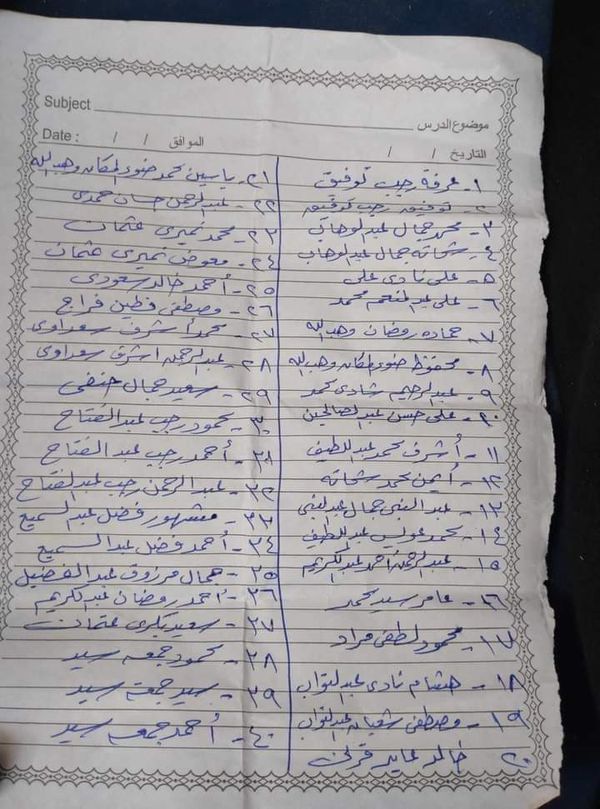 Subject
موضوع الدرس
Date : / /
الموافق / /
التاريخ / /
١- عرفة رجب توفيق
٢- توفيق رجب توفيق
٣- محمد جمال عبد الوهاب
٤- شحاته جمال عبد الوهاب
٥- على نادى على
٦- على عبد المنعم محمد
٧- حماده رمضان وهب الله
٨- محفوظ ضوى المكان وهب الله
٩- عبد الرحيم شادى محمد
١٠- على حسن عبد الصالحين
١١- أشرف محمد عبد اللطيف
١٢- أيمن محمد شحاته
١٣- عبد الغنى جمال عبد الغنى
١٤- محمد عويس عبد اللطيف
١٥- عبد الرحمن أحمد عبد الكريم
١٦- عامر سيد محمد
١٧- محمود لطفى مراد
١٨- هشام نادى عبد التواب
١٩- مصطفى شعبان عبد التواب
٢٠- خالد عايد قرنى
٢١- ياسين محمد ضوى المكان وهب الله
٢٢- عبد الرحمن حسان حمدى
٢٣- محمد نميرى عثمان
٢٤- معوض نميرى عثمان
٢٥- أحمد خالد سعودى
٢٦- مصطفى فطين فراج
٢٧- محمد أشرف سعداوى
٢٨- عبد الرحمن أشرف سعداوى
٢٩- سعيد جمال حنفى
٣٠- محمود رجب عبد الفتاح
٣١- أحمد رجب عبد الفتاح
٣٢- عبد الرحمن رجب عبد الفتاح
٣٣- مشهور فضل عبد السميع
٣٤- أحمد فضل عبد السميع
٣٥- جمال مرزوق عبد الفضيل
٣٦- أحمد رمضان عبد الكريم
٣٧- سعيد بكرى عثمان
٣٨- محمود جمعه سيد
٣٩- سيد جمعه سيد
٤٠- أحمد جمعه سيد